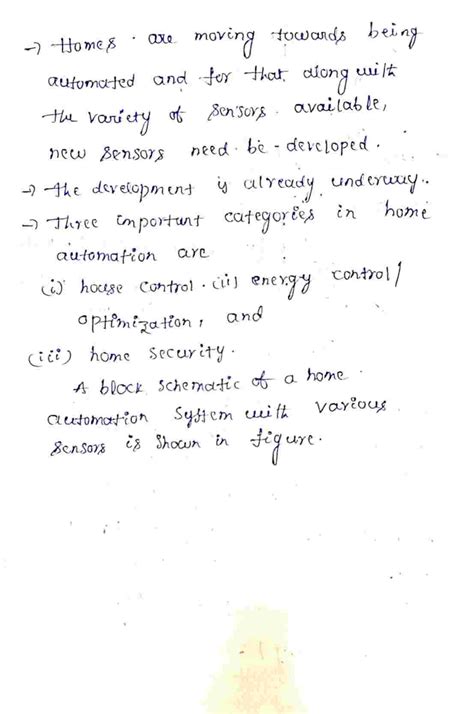 → Homes are moving towards being
automated and for that, along with
the variety of sensors available,
new sensors need be-developed.
→ the development is already underway.
→ Three important categories in home
automation are
(i) house control. (ii) energy control/
optimization, and
(iii) home security.
A block schematic of a home
automation system with various
sensors is shown in figure.